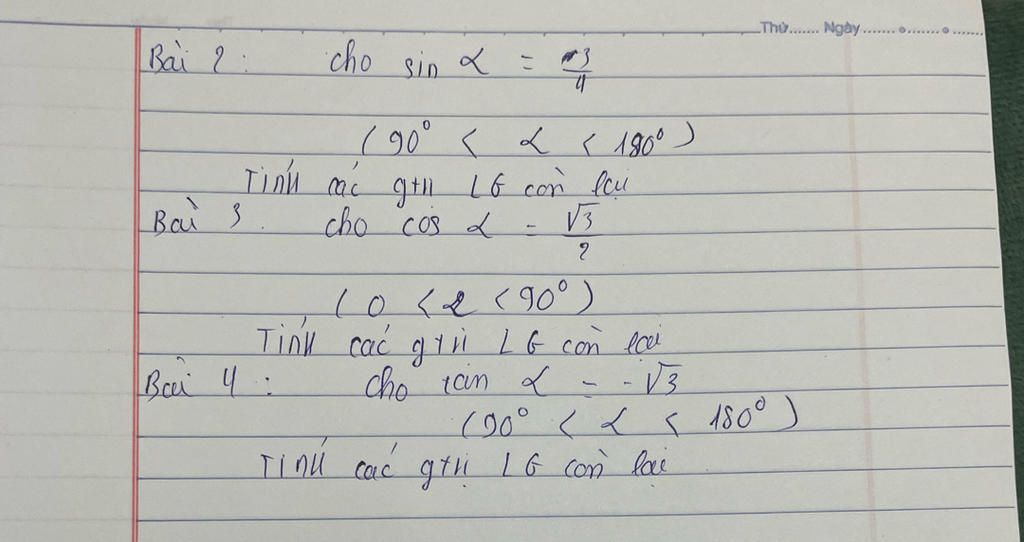 Thứ....... Ngày.......
Bài 2: cho sin α = 3/4
(90° < α < 180°)
Tính các gtrị LG còn lại
Bài 3. cho cos α = √3/2
(0 < α < 90°)
Tính các gtrị LG còn lại
Bài 4: cho tan α = -√3
(90° < α < 180°)
Tính các gtrị LG còn lại